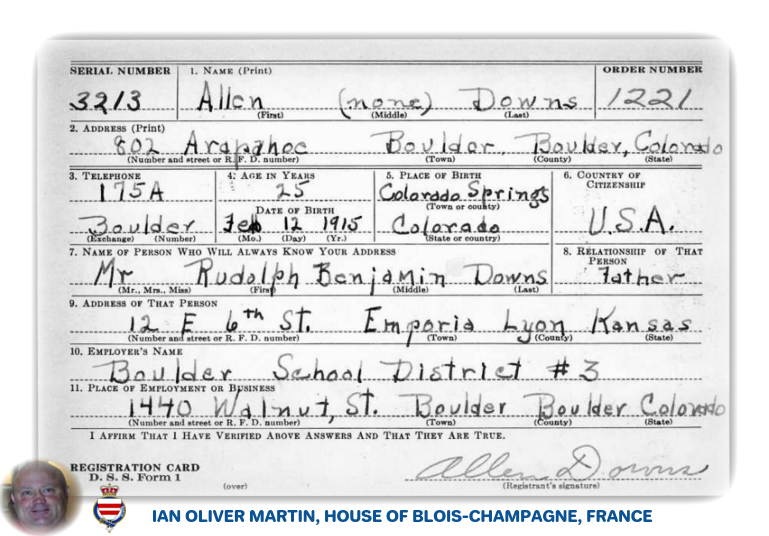 SERIAL NUMBER 1. NAME (Print) ORDER NUMBER
3213 Allen (none) Downs 1221
(First) (Middle) (Last)
2. ADDRESS (Print)
802 Arapahoe Boulder, Boulder, Colorado
(Number and street or R. F. D. number) (Town) (County) (State)
3. TELEPHONE 4. AGE IN YEARS 5. PLACE OF BIRTH 6. COUNTRY OF CITIZENSHIP
175A 25 Colorado Springs
DATE OF BIRTH (Town or county)
Boulder Feb 12 1915 Colorado U.S.A.
(Exchange) (Number) (Mo.) (Day) (Yr.) (State or country)
7. NAME OF PERSON WHO WILL ALWAYS KNOW YOUR ADDRESS 8. RELATIONSHIP OF THAT PERSON
Mr Rudolph Benjamin Downs Father
(Mr., Mrs., Miss) (First) (Middle) (Last)
9. ADDRESS OF THAT PERSON
12 E 6th St. Emporia Lyon Kansas
(Number and street or R. F. D. number) (Town) (County) (State)
10. EMPLOYER'S NAME
Boulder School District #3
11. PLACE OF EMPLOYMENT OR BUSINESS
1440 Walnut, St. Boulder Boulder Colorado
(Number and street or R. F. D. number) (Town) (County) (State)
I AFFIRM THAT I HAVE VERIFIED ABOVE ANSWERS AND THAT THEY ARE TRUE.
REGISTRATION CARD
D. S. S. Form 1 Allen Downs
(over) (Registrant's signature)
IAN OLIVER MARTIN, HOUSE OF BLOIS-CHAMPAGNE, FRANCE